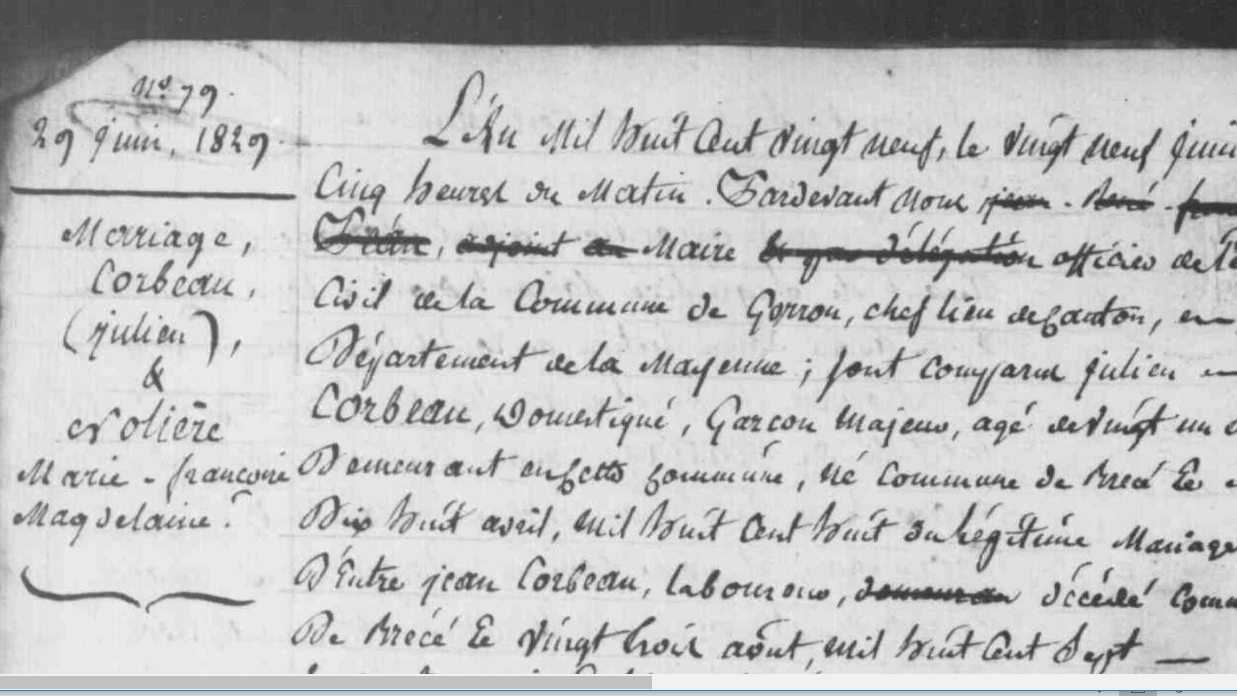 N.º 79.
29 juin, 1829.
Marriage,
Corbeau,
(julien),
&
Nolière
Marie - françoise
Magdelaine.
L'An Mil huit Cent vingt neuf, le vingt neuf juin
Cinq heures du Matin. Pardevant Nous jean - René -
adjoint au Maire et par délégation officier de l'é
Civil de la Commune de Gorron, chef lieu de Canton,
Département de la Mayenne ; sont comparus julien
Corbeau, Domestique, Garçon Majeur, agé de vingt un
Demeurant en cette Commune, né Commune de Brecé Le
Dix huit avril, mil huit Cent huit du légitime Mariage
D'Entre jean Corbeau, laboureur, demeuran décédé Comm
De Brecé Le vingt trois août, mil huit Cent Sept